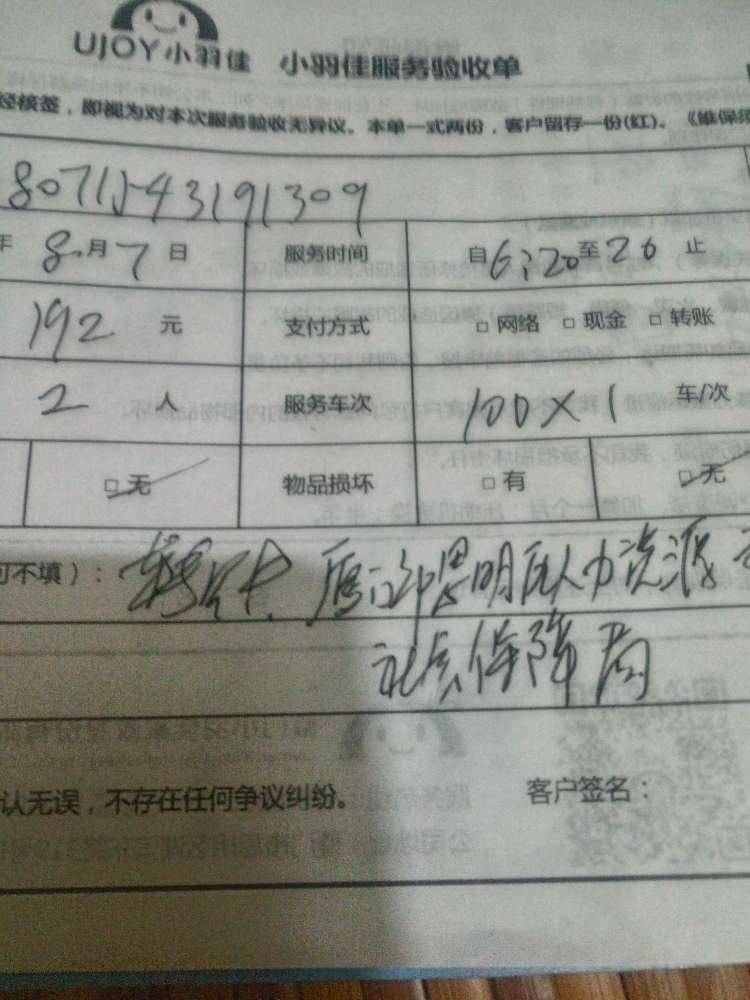 UJOY小羽佳 小羽佳服务验收单
经核签，即视为对本次服务验收无异议。本单一式两份，客户留存一份(红)。《维保须
年 8月7日 服务时间 自6:20至26止
192 元 支付方式 □网络 □现金 □转账
2 人 服务车次 100×1 车/次
□无 物品损坏 □有 □无
可不填）： 厦门市思明区人力资源
社会保障局
认无误，不存在任何争议纠纷。 客户签名：